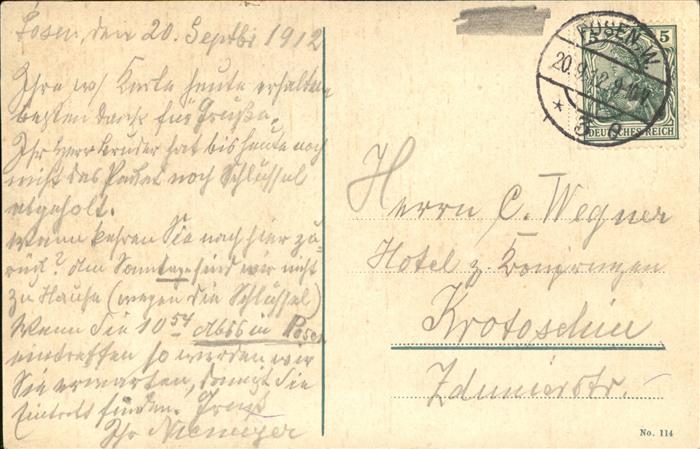 Posen, den 20. Septbr 1912
Ihre w/ Karte heute erhalten
besten Dank für Grüße.
Ihr Herr Bruder hat bis heute noch
nicht das Packet noch Schlüssel
abgeholt.
Wann kehren Sie nach hier zu-
rück? Am Sonntage sind wir nicht
zu Hause (wegen die Schlüssel)
Wenn Sie 10 54 Abds in Posen
eintreffen so werden wir
Sie erwarten, damit Sie
Eintritt finden.
Ihr Niemeyer
POSEN.W.
20.9.12.9-10
* 3 a
5 5
DEUTSCHES REICH
Herrn C. Wegner
Hotel z.
Krotoschin
Zdunierstr.
No. 114